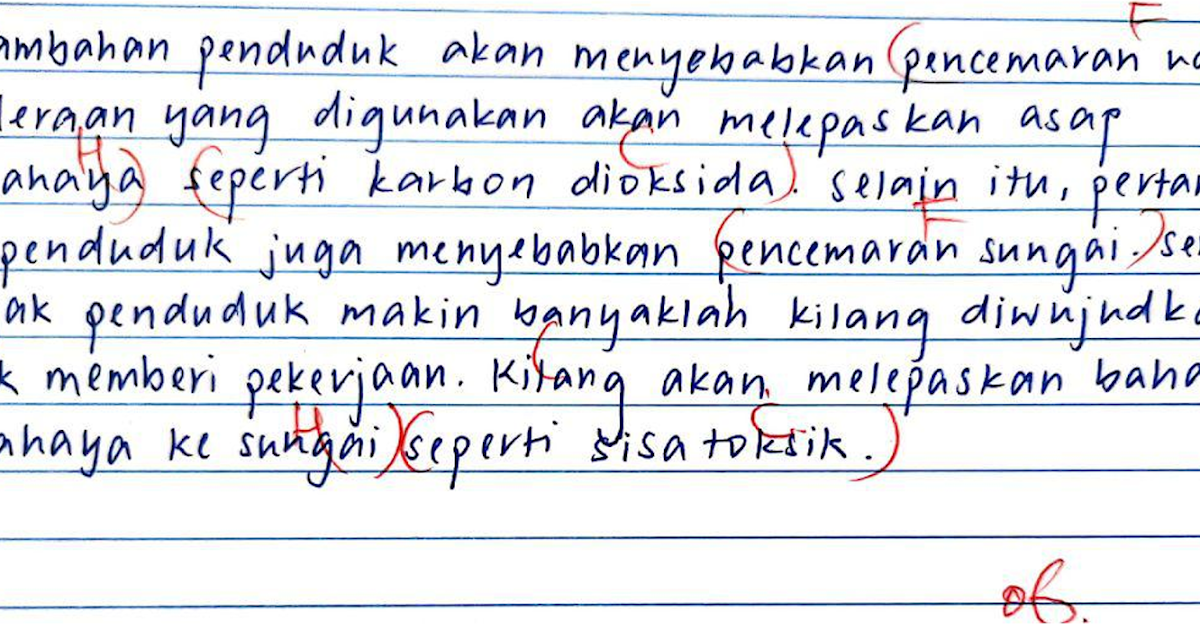 F
ambahan penduduk akan menyebabkan (pencemaran
deraan yang digunakan akan melepaskan asap
H C
ahaya) (seperti karbon dioksida). selain itu, pertam
F
penduduk juga menyebabkan (pencemaran sungai.) se
ak penduduk makin banyaklah kilang diwujudka
k memberi pekerjaan. (Kilang akan melepaskan baha
H C
ahaya ke sungai) (seperti sisa toksik.)